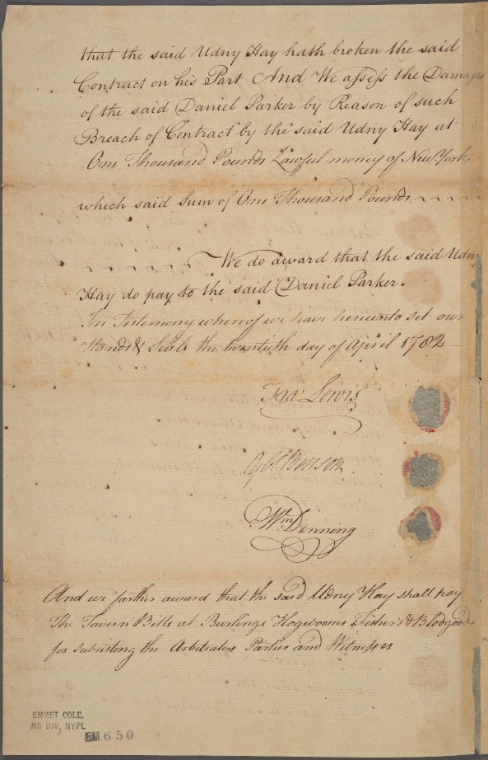 that the said Udny Hay hath broken the said
Contract on his Part And We assess the Damages
of the said Daniel Parker by Reason of such
Breach of Contract by the said Udny Hay at
One Thousand Pounds Lawful money of New York
which said Sum of One Thousand Pounds
We do award that the said Udny
Hay do pay to the said Daniel Parker.
In Testimony whereof we have hereunto set our
Hands & Seals the twentieth day of April 1782
Fras Lewis
Egbt Benson
Wm Denning
And we farther award that the said Udney Hay shall pay
the Tavern Bills at Hogebooms Fisher's &
for subsisting the Arbitrators Parties and Witnesses
EMMET COLL.
MS DIV, NYPL
EM 650